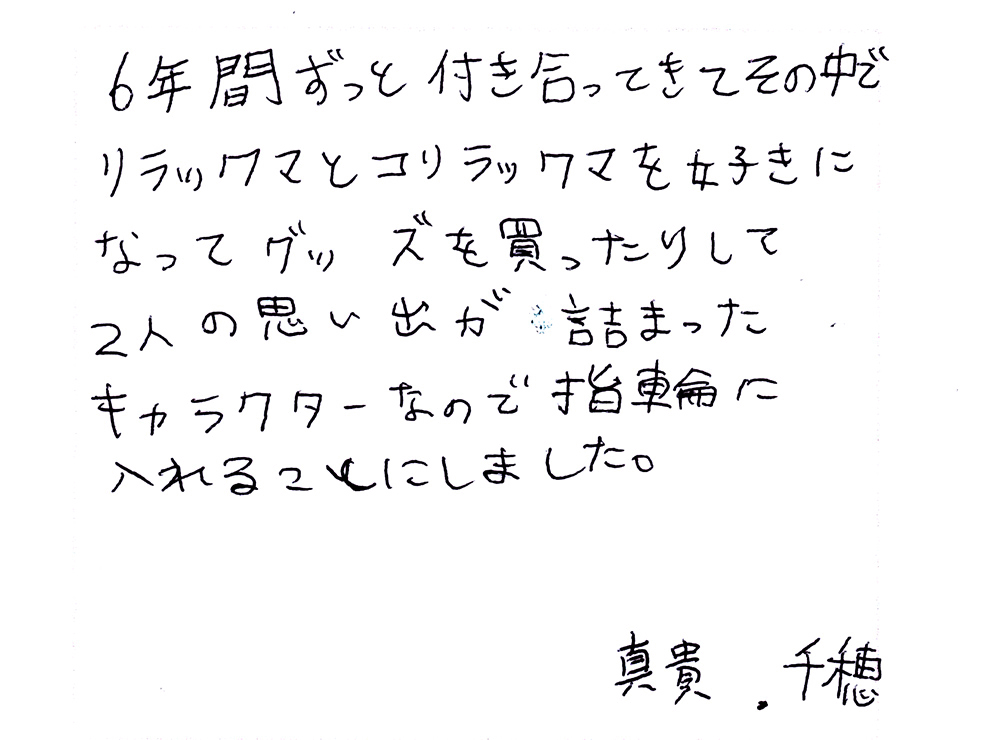 6年間ずっと付き合ってきてその中で
リラックマとコリラックマを好きに
なってグッズを買ったりして
2人の思い出が詰まった
キャラクターなので指輪に
入れることにしました。
真貴.千穂